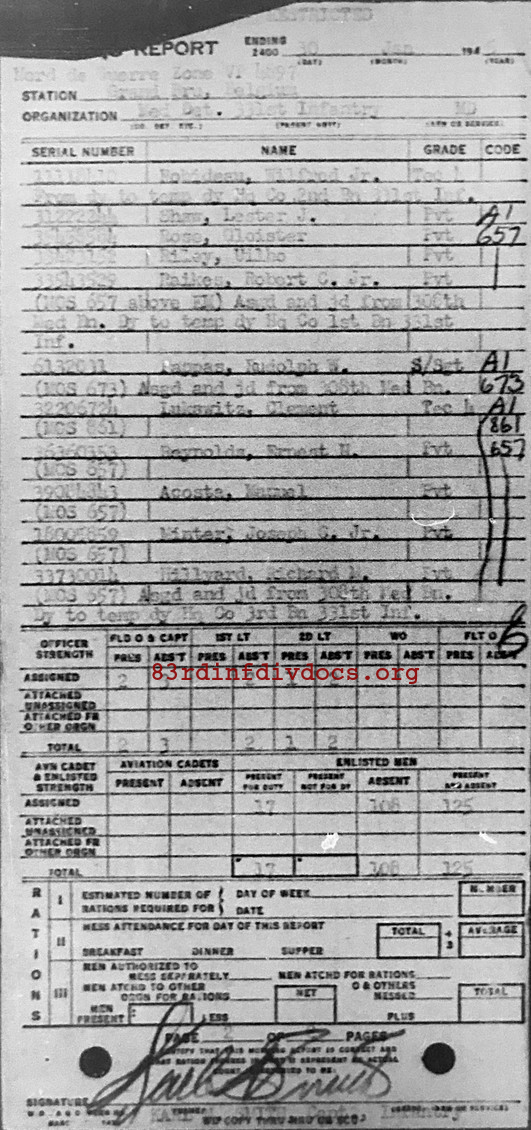 RESTRICTED
REPORT ENDING 2400 30 Jan 194
(DAY) (MONTH) (YEAR)
Nord de Guerre Zone VP 4897
STATION Grand Bru, Belgium
ORGANIZATION Med Det. 331st Infantry MD
SERIAL NUMBER NAME GRADE CODE
Robideau, Wilfred Jr. Tec 4
From dy to temp dy Hq Co 2nd Bn 331st Inf.
31222244 Shaw, Lester J. Pvt A1
Rose, Oloister Pvt 657
Riley, Uilho Pvt
33543529 Raikes, Robert C. Jr. Pvt
(MOS 657 above EM) Asgd and jd from 308th
Med Bn. Dy to temp dy Hq Co 1st Bn 331st
Inf.
6132031 Pappas, Rudolph W. S/Sgt A1
(MOS 673) Asgd and jd from 308th Med Bn. 673
32206724 Lukawitz, Clement Tec 4 A1
(MOS 861) 861
36360353 Reynolds, Ernest H. Pvt 657
(MOS 657)
39084843 Acosta, Manuel Pvt
(MOS 657)
18005859 Minter, Joseph G. Jr. Pvt
(MOS 657)
33730014 Hillyard, Richard M. Pvt
(MOS 657) Asgd and jd from 308th Med Bn.
Dy to temp dy Hq Co 3rd Bn 331st Inf.
OFFICER STRENGTH FLD O & CAPT 1ST LT 2D LT WO FLT O
PRES ABS'T PRES ABS'T PRES ABS'T PRES ABS'T PRES ABS'T
ASSIGNED 2 3 2 1 2
83rdinfdivdocs.org
ATTACHED UNASSIGNED
ATTACHED FR OTHER ORGN
TOTAL 2 3 2 1 2
AVN CADET & ENLISTED STRENGTH AVIATION CADETS ENLISTED MEN
PRESENT ABSENT PRESENT FOR DUTY PRESENT NOT FOR DY ABSENT PRESENT AND ABSENT
ASSIGNED 17 108 125
ATTACHED UNASSIGNED
ATTACHED FR OTHER ORGN
TOTAL 17 108 125
RATIONS
I ESTIMATED NUMBER OF RATIONS REQUIRED FOR DAY OF WEEK DATE NUMBER
II MESS ATTENDANCE FOR DAY OF THIS REPORT TOTAL ÷ 3 AVERAGE
BREAKFAST DINNER SUPPER
III MEN AUTHORIZED TO MESS SEPARATELY MEN ATCHD FOR RATIONS
MEN ATCHD TO OTHER ORGN FOR RATIONS NET O & OTHERS MESSED TOTAL
MEN PRESENT LESS PLUS
PAGE 2 OF PAGES
I CERTIFY THAT THIS MORNING REPORT IS CORRECT AND
SIGNATURE
SMITH Capt Infantry